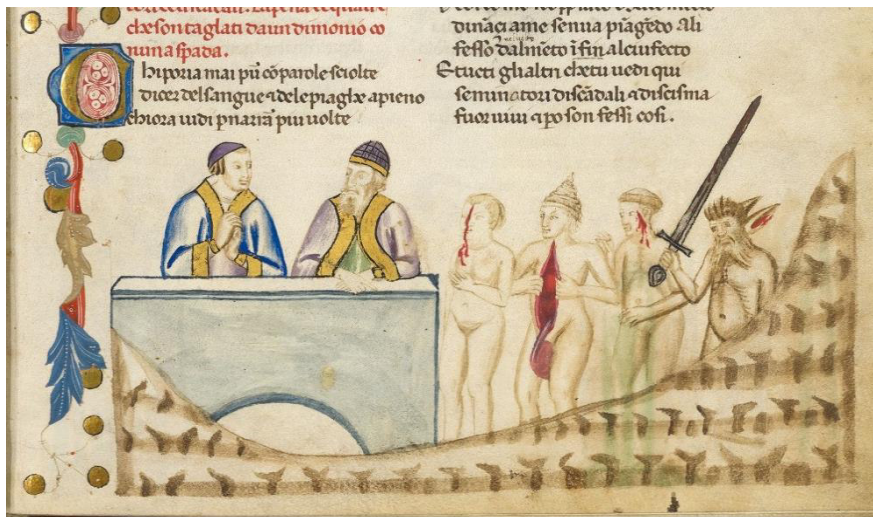 cheson taglati daun dimonio co
nuna spada.
Chiporia mai pũ cõ parole sciolte
dicer del sangue ⁊ dele piaghe apieno
chiora uidi p narrar piu uolte
dinãci ame senua piãgẽdo Ali
fesso dalmẽto ĩfin alciufecto
E tucti ghaltri chetu uedi qui
seminatori discãdali ⁊ discisma
fuor uiui ⁊ po son fessi cosi.